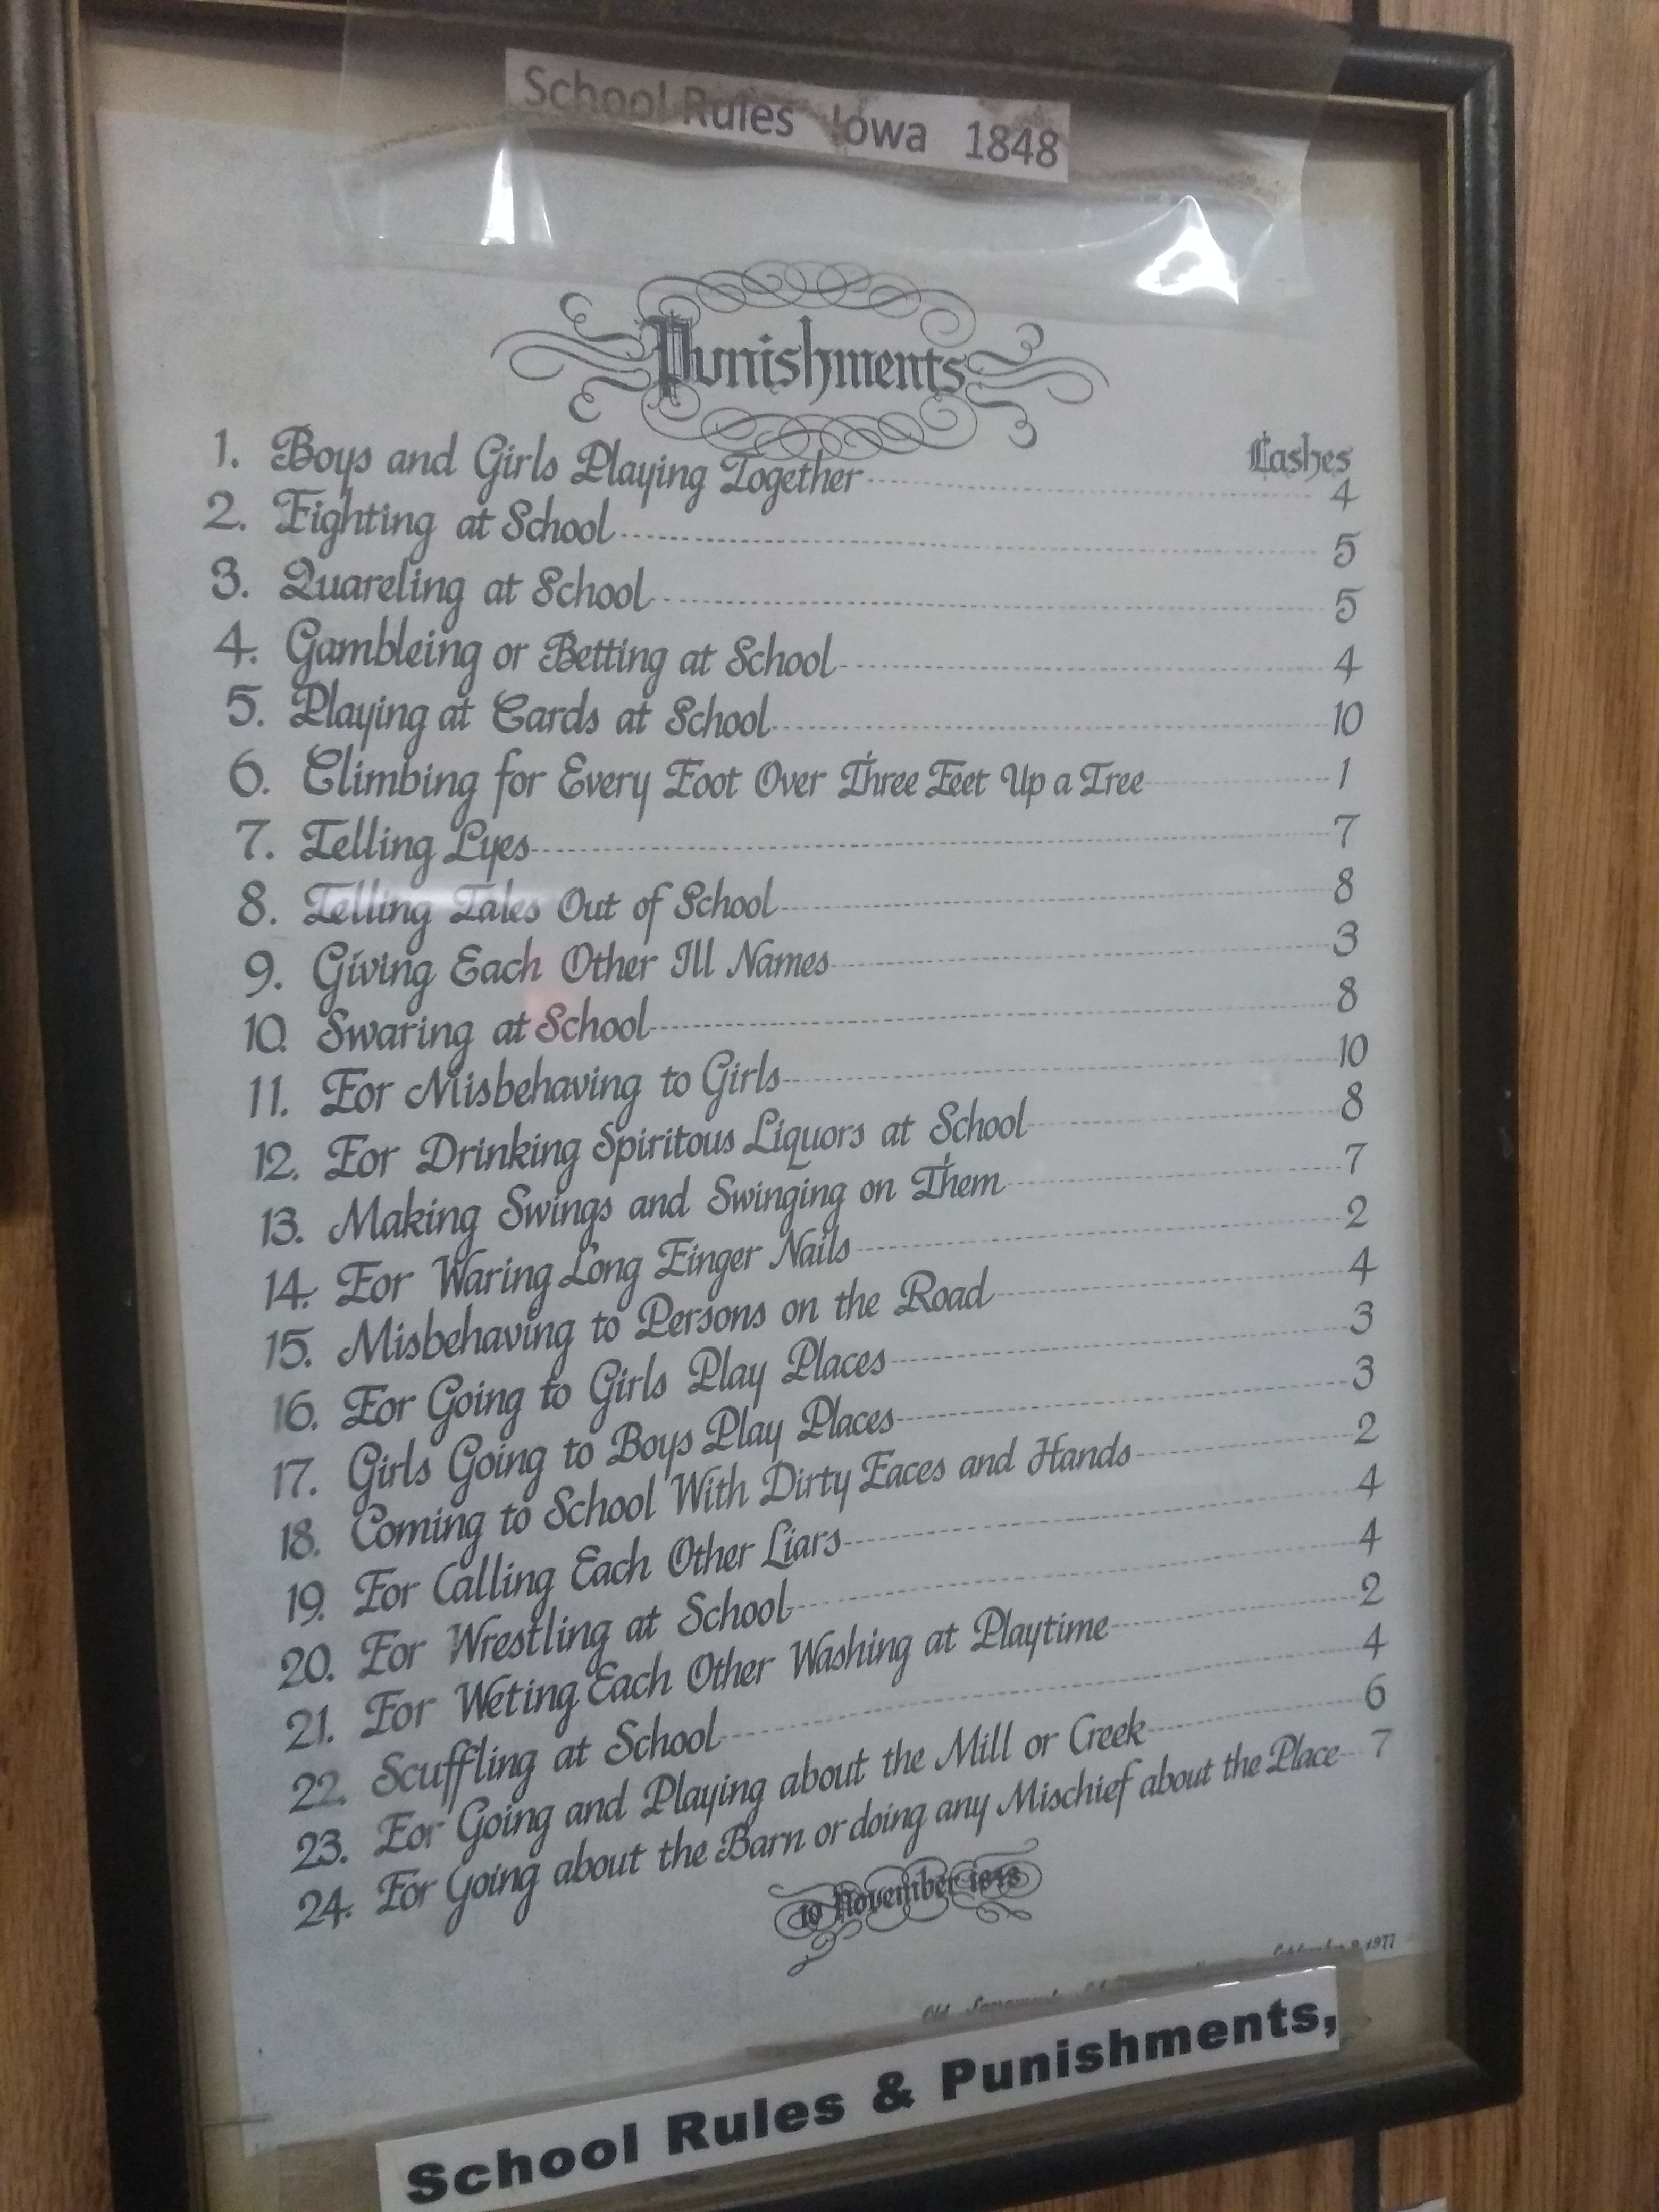 School Rules Iowa 1848
Punishments
Lashes
1. Boys and Girls Playing Together 4
2. Fighting at School 5
3. Quareling at School 5
4. Gambleing or Betting at School 4
5. Playing at Cards at School 10
6. Climbing for Every Foot Over Three Feet Up a Tree 1
7. Telling Lyes 7
8. Telling Tales Out of School 8
9. Giving Each Other Ill Names 3
10. Swaring at School 8
11. For Misbehaving to Girls 10
12. For Drinking Spiritous Liquors at School 8
13. Making Swings and Swinging on Them 7
14. For Waring Long Finger Nails 2
15. Misbehaving to Persons on the Road 4
16. For Going to Girls Play Places 3
17. Girls Going to Boys Play Places 3
18. Coming to School With Dirty Faces and Hands 2
19. For Calling Each Other Liars 4
20. For Wrestling at School 4
21. For Weting Each Other Washing at Playtime 2
22. Scuffling at School 4
23. For Going and Playing about the Mill or Creek 6
24. For Going about the Barn or doing any Mischief about the Place 7
10 November 1848
1977
Old
School Rules & Punishments,